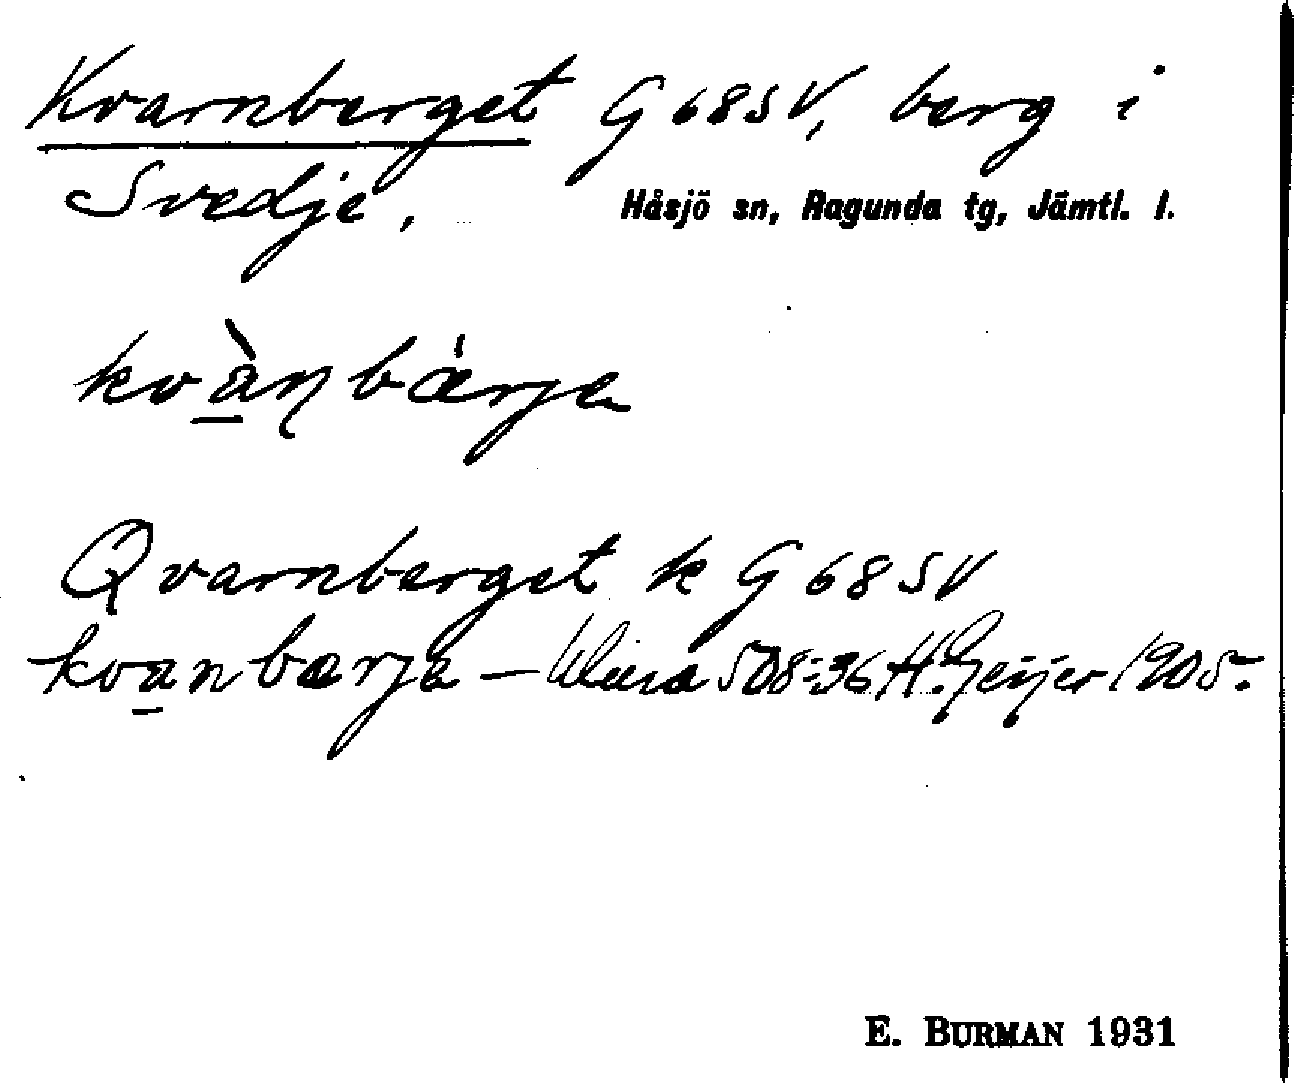 Kvarnberget G 68 SV, berg i
Svedje, Håsjö sn, Ragunda tg, Jämtl. l.
kvàn bǽrjа
Qvarnberget k G 68 SV
kvanbærja — 508:36 H. Geijer 1905.
E. BURMAN 1931